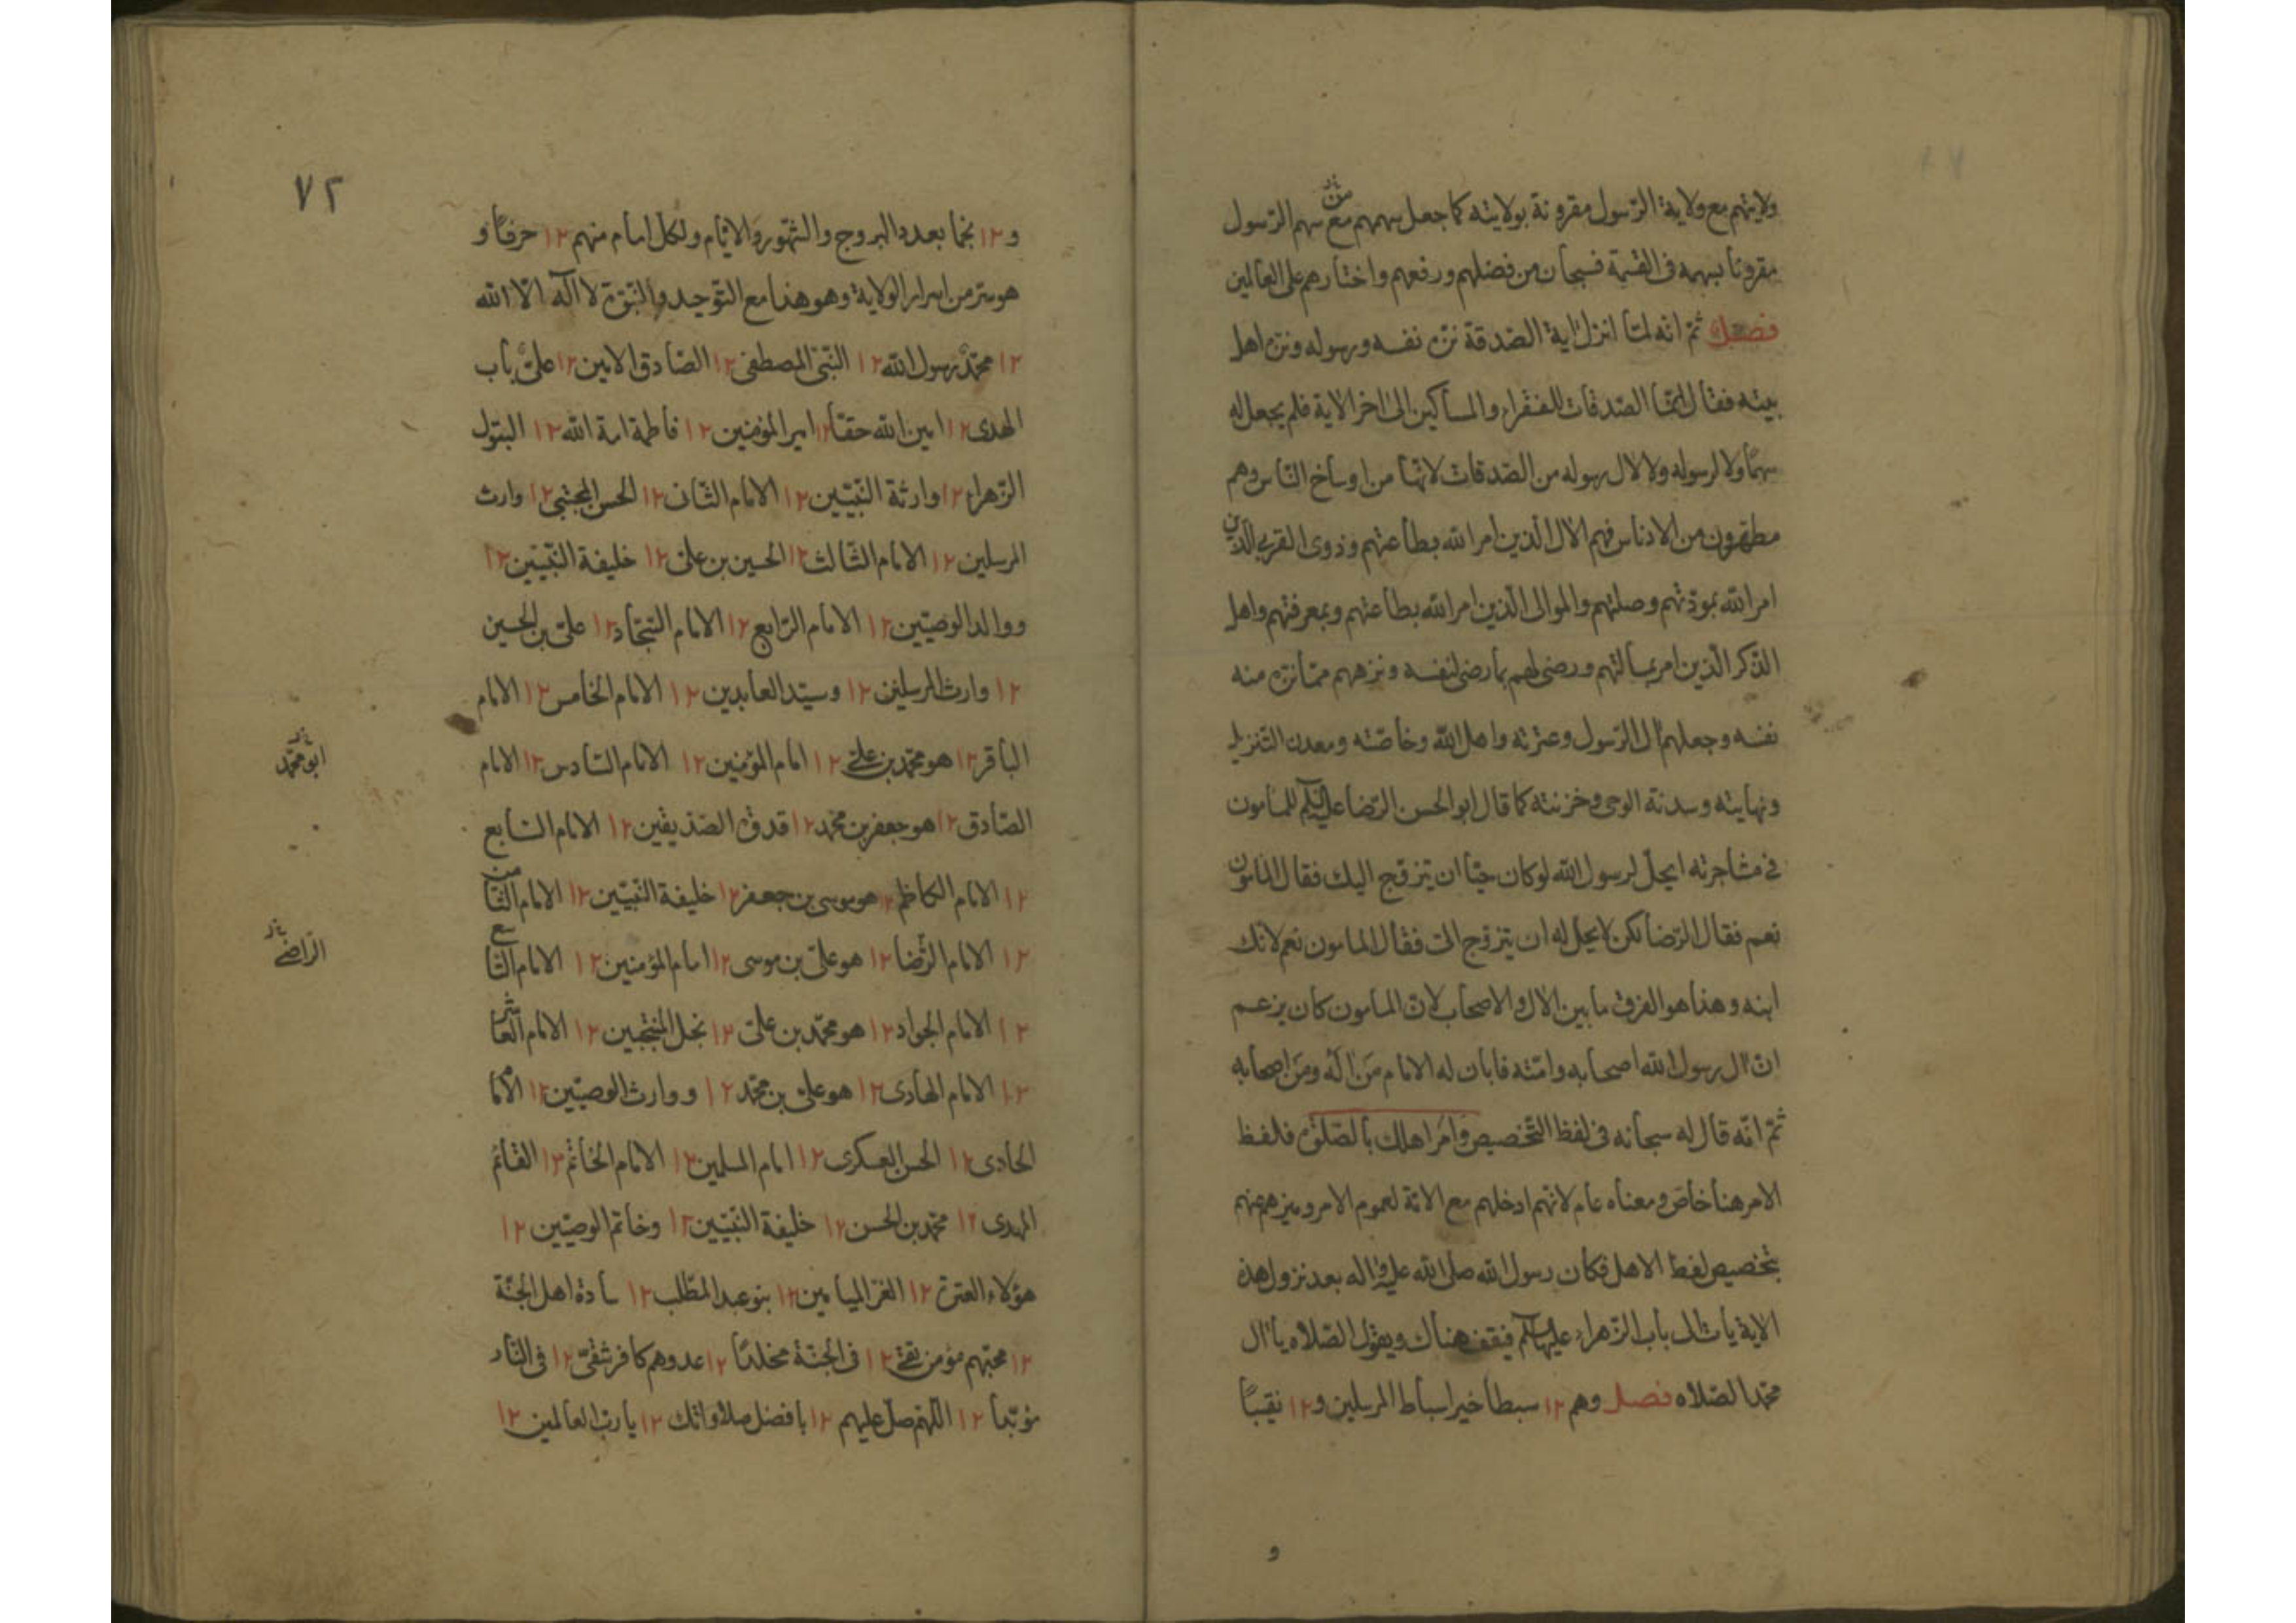 ولايتهم مع ولاية الرّسول مقرونة بولايته كما جعل سهمهم مع سهم الرّسول
من
مقرونا بسهمه فى القسمة فسبحان من فضلهم ورفعهم واختارهم على العالمين
فصل ثمّ انّه لمّا انزل اية الصّدقة نزّه نفسه ورسوله ونزّه اهل
بيته فقال انّما الصّدقات للفقراء والمساكين الى اخر الاية فلم يجعل له
سهمًا ولا لرسوله ولا لال رسوله من الصّدقات لانّها من اوساخ النّاس وهم
مطهّرون من الادناس فهم الال الّذين امر الله بطاعتهم وذوى القربى الّذين
امر الله بمودّتهم وصلتهم والموالى الّذين امر الله بطاعتهم وبمعرفتهم واهل
الذّكر الّذين امر بمسالتهم ورضى لهم بما رضى لنفسه ونزههم ممّا نزّه منه
نفسه وجعلهم ال الرّسول وعترته واهل الله وخاصّته ومعدن التّنزيل
ونهايته وسدنة الوحى وخزنته كما قال ابو الحسن الرّضا عليه السلام للمأمون
فى مشاجرته ايحلّ لرسول الله لو كان حيّا ان يتزوّج اليك فقال المامون
نعم فقال الرّضا لكن لا يحل له ان يتزوّج الىّ فقال المامون نعم لانّك
ابنه وهذا هو الفرق ما بين الال والاصحاب لانّ المامون كان يزعم
انّ ال رسول الله اصحابه وامّته فابان له الامام مَن اله ومَن اصحابه
ثمّ انّه قال له سبحانه فى لفظ التّخصيص وامر اهلك بالصّلوة فلفظ
الامر هنا خاصّ ومعناه عام لانّهم ادخلهم مع الامّة لعموم الامر وميزهم عنهم
بتخصيص لفظ الاهل فكان رسول الله صلى الله عليه واله بعد نزول هذه
الاية ياتى الى باب الزّهراء عليها السلام فيقف هناك ويقول الصّلاه يا ال
محمّد الصّلاه فصل وهم ١٢ سبطا خير اسباط المرسلين و١٢ نقيبًا
و
٧٢
و١٢ نجما بعدد البروج والشّهور والايّام ولكل امام منهم ١٢ حرفًا و
هو سرّ من اسرار الولاية وهو هذا مع التّوحيد والنّبوّة لا اله الّا الله
١٢ محمّد رسول الله ١٢ النّبىّ المصطفى ١٢ الصّادق الامين ١٢ علىّ باب
الهدى ١٢ امين الله حقّا ١٢ امير المؤمنين ١٢ فاطمة امة الله ١٢ البتول
الزّهراء ١٢ وارثة النّبيّين ١٢ الامام الثّانى ١٢ الحسن المجتبى ١٢ وارث
المرسلين ١٢ الامام الثّالث ١٢ الحسين بن علىّ ١٢ خليفة النّبيّين ١٢
ووالد الوصيّين ١٢ الامام الرّابع ١٢ الامام السّجّاد ١٢ علىّ بن الحسين
١٢ وارث المرسلين ١٢ وسيّد العابدين ١٢ الامام الخامس ١٢ الامام
الباقر ١٢ هو محمّد بن علىّ ١٢ امام المؤمنين ١٢ الامام السّادس ١٢ الامام
ابو محمّد
الصّادق ١٢ هو جعفر بن محمّد ١٢ قدوة الصّدّيقين ١٢ الامام السّابع
١٢ الامام الكاظم ١٢ هو موسى بن جعفر ١٢ خليفة النّبيّين ١٢ الامام الثّامن
١٢ الامام الرّضا ١٢ هو علىّ بن موسى ١٢ امام المؤمنين ١٢ الامام التّاسع
الرّاضى
١٢ الامام الجواد ١٢ هو محمّد بن علىّ ١٢ نجل المنتجبين ١٢ الامام العاشر
١٢ الامام الهادى ١٢ هو علىّ بن محمّد ١٢ ووارث الوصيّين ١٢ الامام
الحادى ١٢ الحسن العسكرى ١٢ امام المسلمين ١٢ الامام الخاتم ١٢ القائم
المهدى ١٢ محمّد بن الحسن ١٢ خليفة النّبيّين ١٢ وخاتم الوصيّين ١٢
هؤلاء العترة ١٢ الغرّ الميامين ١٢ بنو عبد المطّلب ١٢ سادة اهل الجنّة
١٢ محبّهم مؤمن تقىّ ١٢ فى الجنّة مخلدًا ١٢ عدوهم كافر شقىّ ١٢ فى النّار
مؤبّدا ١٢ اللّهم صلّ عليهم ١٢ بافضل صلاواتك ١٢ يا ربّ العالمين ١٢